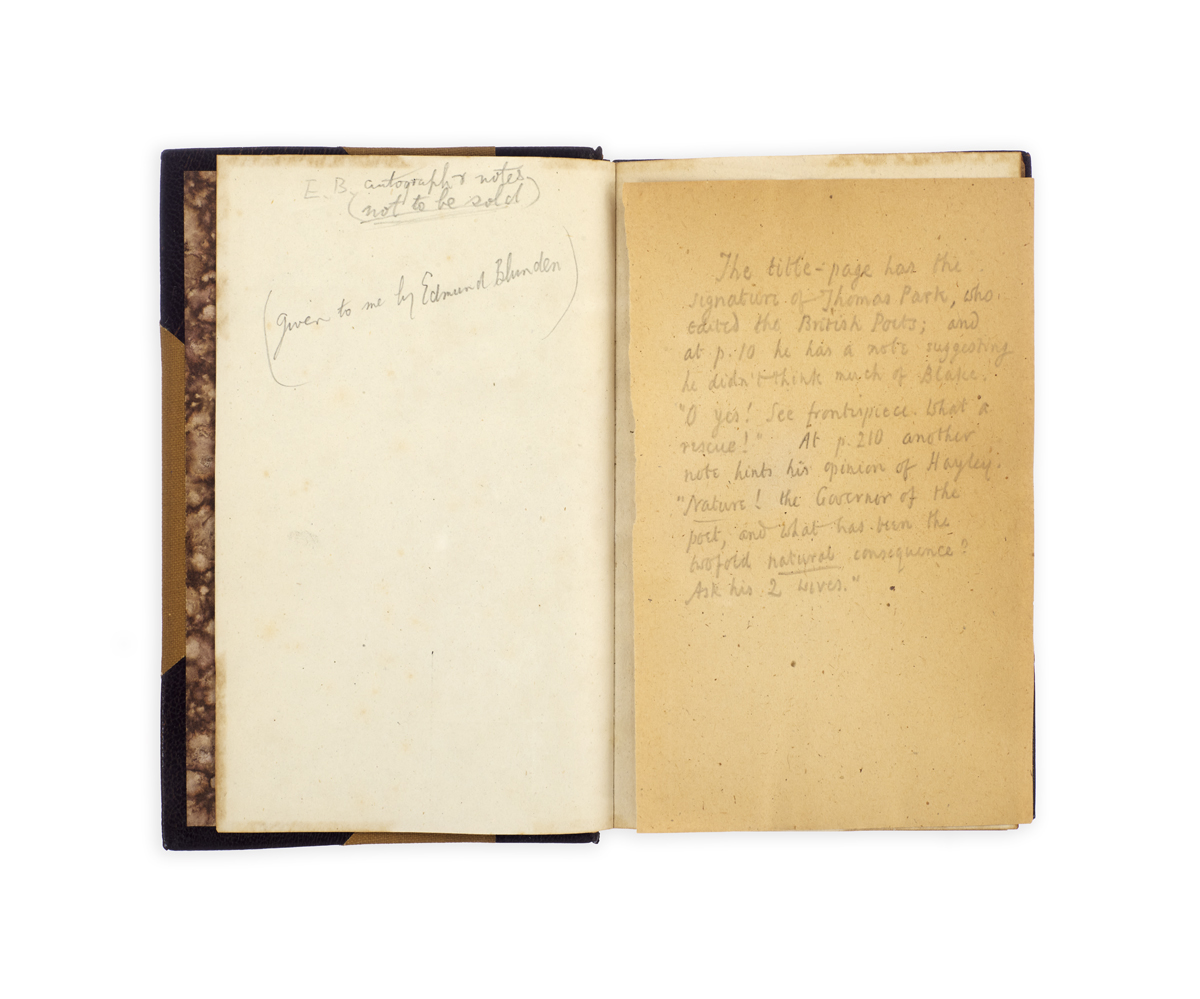 E. B. autograph & notes
(not to be sold)
(given to me by Edmund Blunden)
The title-page has the
signature of Thomas Park, who
edited the British Poets; and
at p.10 he has a note suggesting
he didn't think much of Blake.
"O yes! See frontispiece. What a
rescue!" At p.210 another
note hints his opinion of Hayley:
"Nature! the Governor of the
poet, and what has been the
twofold natural consequence?
Ask his 2 wives."